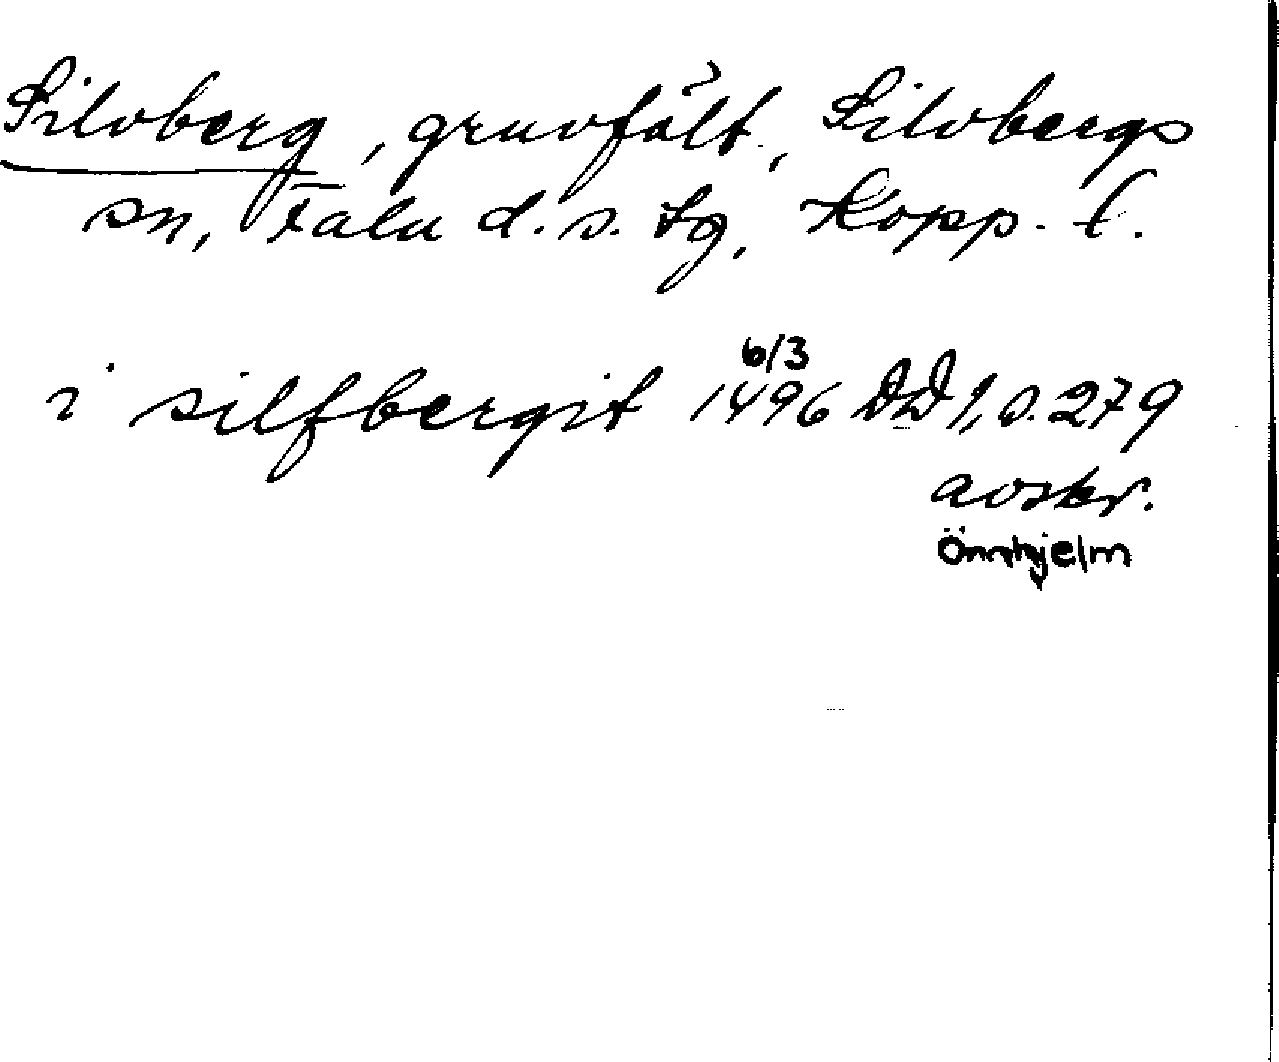 Silvberg, gruvfält, Silvbergs
sn, Falu d.s. tg, Kopp. l.
i silfbergit 1496 6/3 DD 1, s. 279
avskr.
Örnhjelm